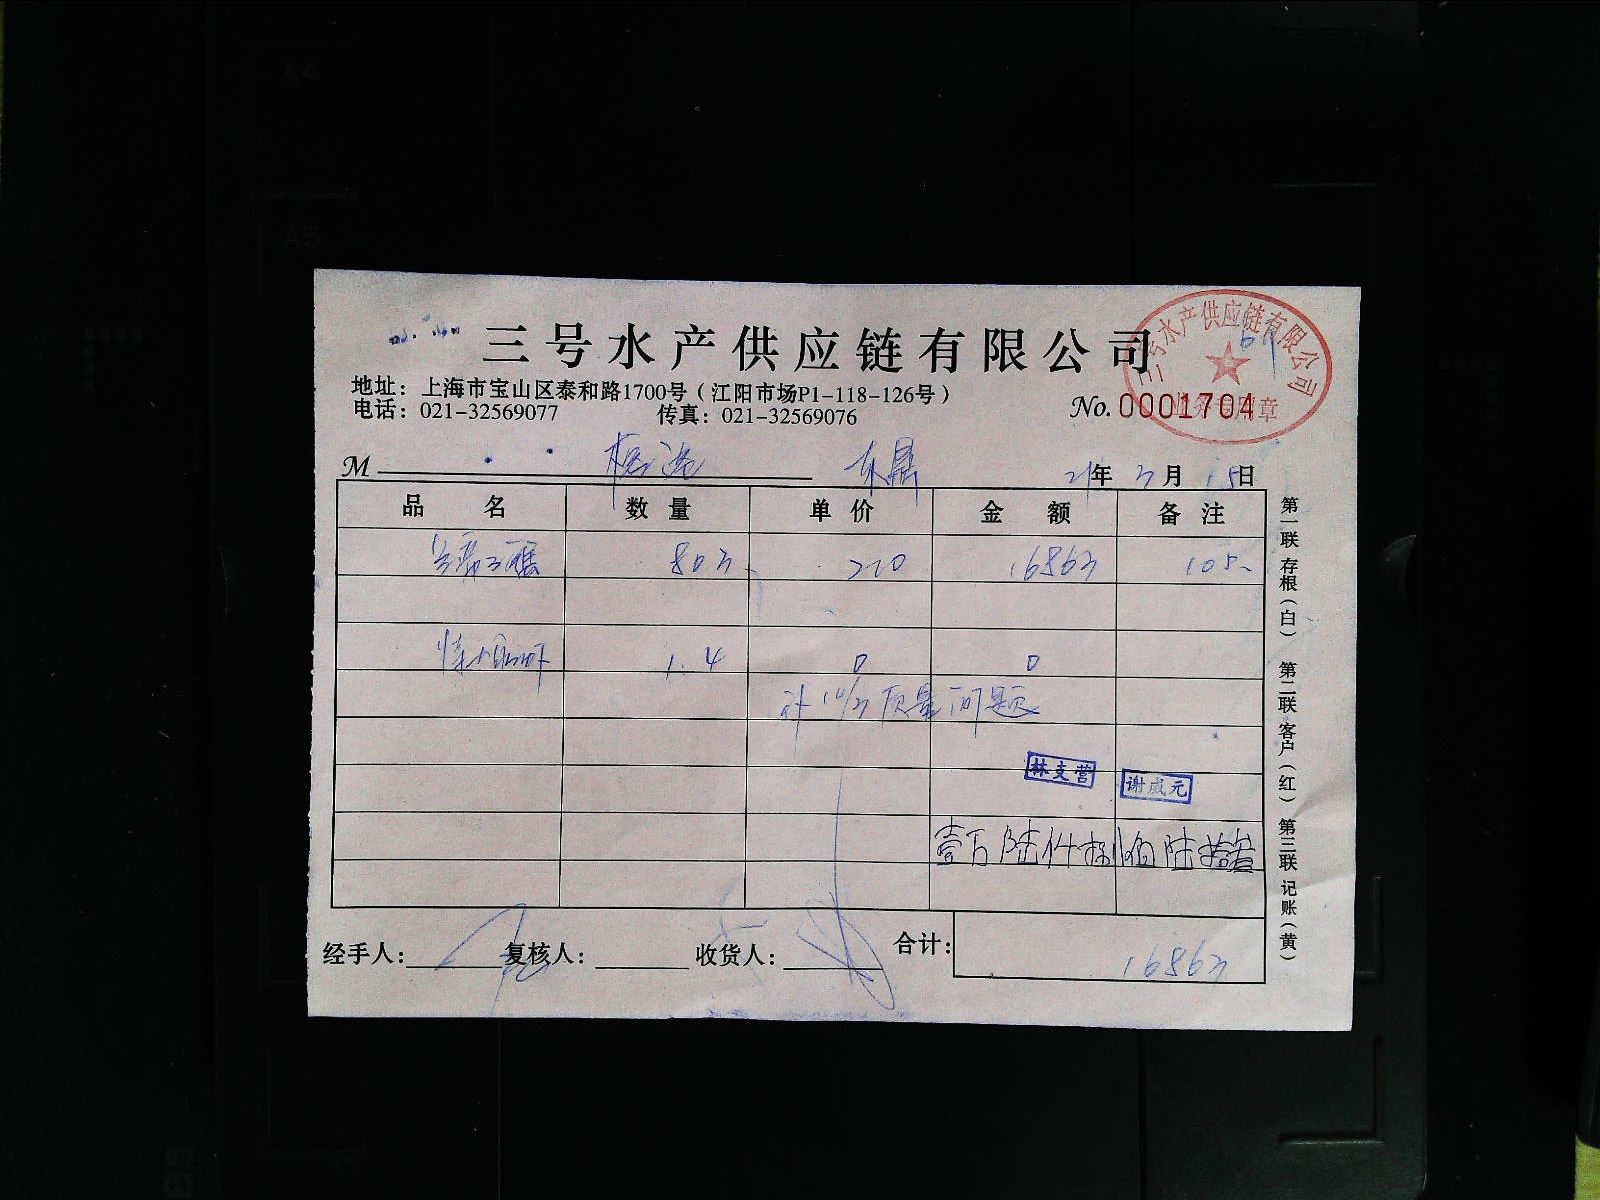 三号水产供应链有限公司
三号水产供应链有限公司
地址：上海市宝山区泰和路1700号（江阳市场P1-118-126号）
电话：021-32569077 传真：021-32569076
No. 0001704
M 东鼎 21年 3月 15日
品名 数量 单价 金额 备注
803 210 16863 105
1.4 0 0
补 质量问题
林支营
谢咸元
壹万陆仟捌佰陆拾叁
经手人： 复核人： 收货人： 合计： 16863
第一联 存根（白） 第二联 客户（红） 第三联 记账（黄）